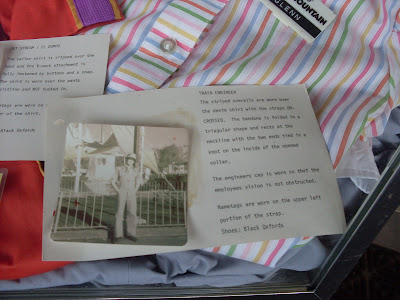 MOUNTAIN
GLENN
The yellow shirt is zipped over the
and the
fully fastened by buttons and a snap.
The shirt is worn over the pants
and NOT tucked in.
Nametags are worn on
of the shirt.
Black Oxfords
TRAIN ENGINEER
The striped overalls are worn over
the pants shirt with the straps UN-
CROSSED. The bandana is folded in a
triangular shape and rests at the
neckline with the two ends tied in a
knot on the inside of the opened
collar.
The engineers cap is worn so that the
employees vision is not obstructed.
Nametags are worn on the upper left
portion of the strap.
Shoes: Black Oxfords